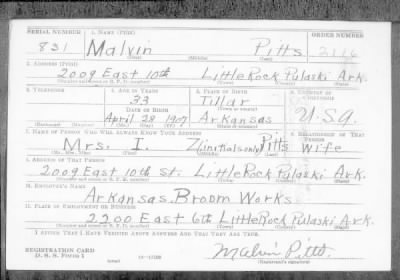 SERIAL NUMBER 1. NAME (Print) ORDER NUMBER
831 Malvin Pitts
(First) (Middle) (Last)
2. ADDRESS (Print)
2009 East 10th Little Rock Pulaski Ark.
3. TELEPHONE 4. AGE IN YEARS 5. PLACE OF BIRTH 6. COUNTRY OF CITIZENSHIP
33 Tillar
DATE OF BIRTH (Town or county)
April 28 1907 Arkansas U.S.A.
(Exchange) (Number) (Mo.) (Day) (Yr.) (State or country)
7. NAME OF PERSON WHO WILL ALWAYS KNOW YOUR ADDRESS 8. RELATIONSHIP OF THAT PERSON
Mrs. I. Z (initials only) Pitts Wife
(Mr., Mrs., Miss) (First) (Middle) (Last)
9. ADDRESS OF THAT PERSON
2009 East 10th St. Little Rock Pulaski Ark.
10. EMPLOYER'S NAME
Arkansas Broom Works
11. PLACE OF EMPLOYMENT OR BUSINESS
2200 East 6th Little Rock Pulaski Ark.
I AFFIRM THAT I HAVE VERIFIED ABOVE ANSWERS AND THAT THEY ARE TRUE.
REGISTRATION CARD
D. S. S. Form 1
Malvin Pitts
(Registrant's signature)